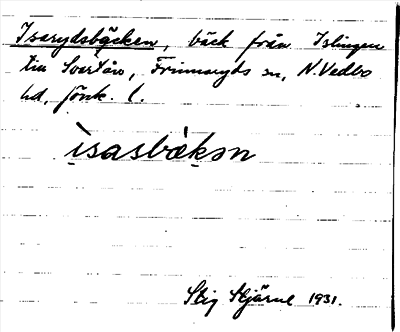 Isarydsbäcken, bäck från Islingen
till Svartån, Frinnaryds sn, N. Vedbo
hd, Jönk. l.
ìsasbä̀kən
Stig Hjärne 1931.